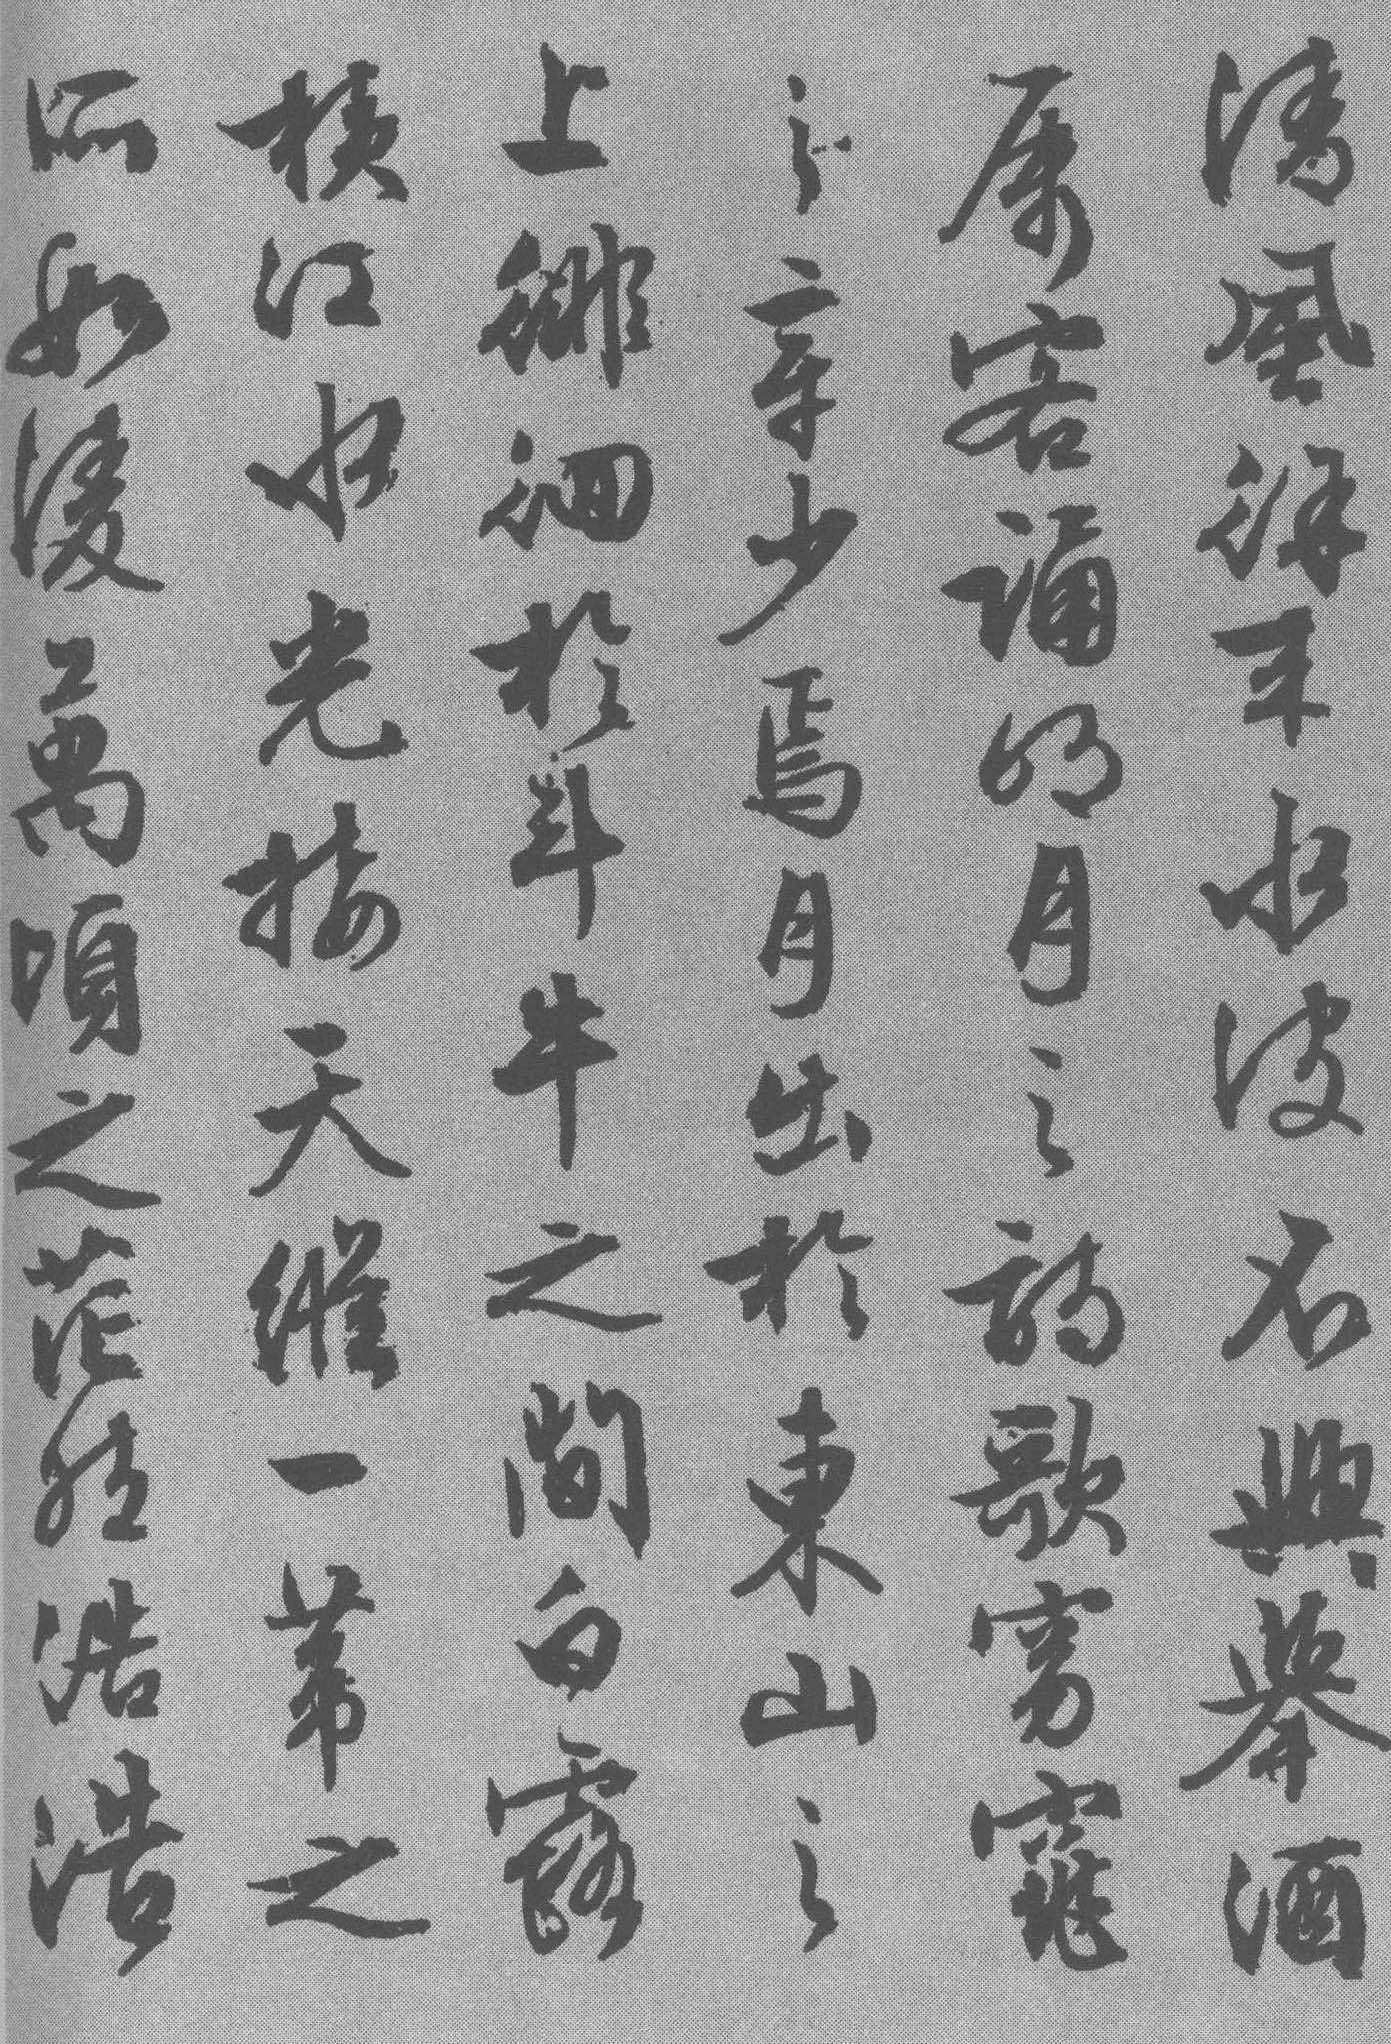 清風徐來水波不興舉酒
属客誦明月之詩歌窈窕
之章少焉月出於東山之
上徘徊於斗牛之間白露
橫江水光接天縱一葦之
所如凌萬頃之茫然浩浩